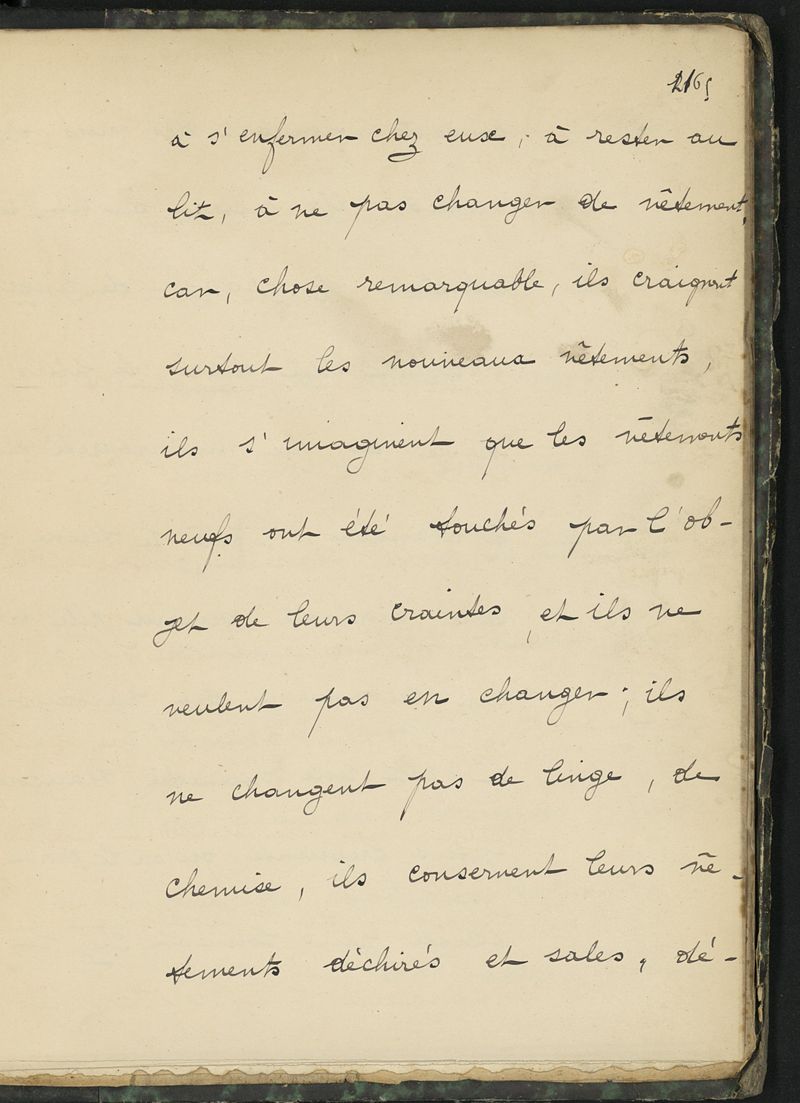 à s'enfermer chez eux, à rester au
lit, à ne pas changer de vêtement,
car, chose remarquable, ils craignent
surtout les nouveaux vêtements,
ils s'imaginent que les vêtements
neufs ont été touchés par l'ob-
jet de leurs craintes, et ils ne
veulent pas en changer; ils
ne changent pas de linge, de
chemise, ils conservent leurs vê-
tements déchirés et sales, dé-